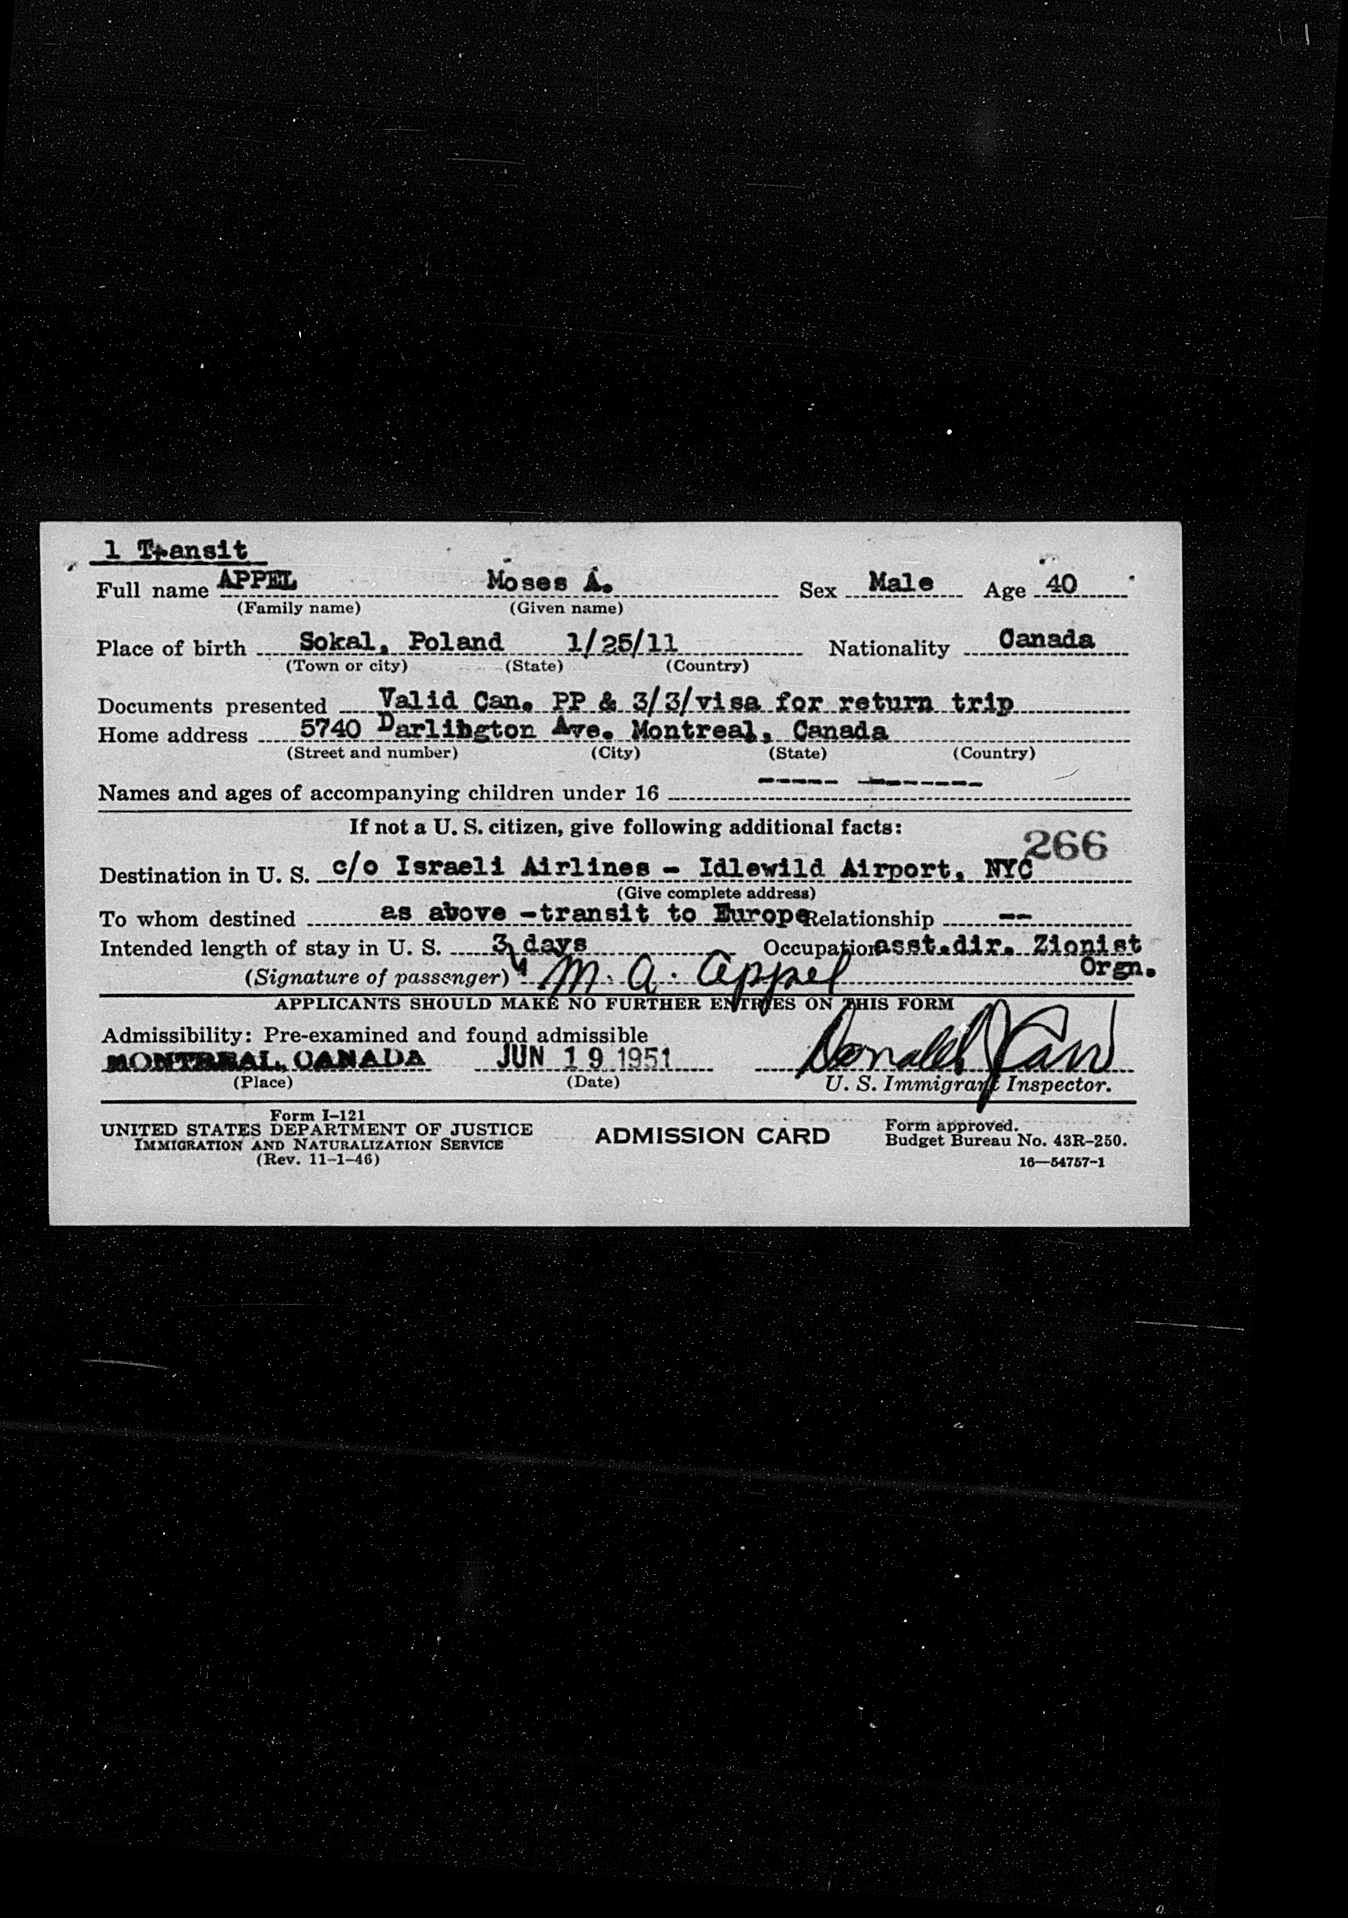 1 Transit
Full name APPEL Moses A. Sex Male Age 40
(Family name) (Given name)
Place of birth Sokal, Poland 1/25/11 Nationality Canada
(Town or city) (State) (Country)
Documents presented Valid Can. PP & 3/3/visa for return trip
Home address 5740 Darlington Ave. Montreal, Canada
(Street and number) (City) (State) (Country)
Names and ages of accompanying children under 16 ----- -------
If not a U. S. citizen, give following additional facts:
266
Destination in U. S. c/o Israeli Airlines - Idlewild Airport, NYC
(Give complete address)
To whom destined as above -transit to Europe Relationship --
Intended length of stay in U. S. 3 days Occupation asst.dir. Zionist
Orgn.
(Signature of passenger) M. A. Appel
APPLICANTS SHOULD MAKE NO FURTHER ENTRIES ON THIS FORM
Admissibility: Pre-examined and found admissible
MONTREAL, CANADA JUN 19 1951 Donald J
(Place) (Date) U. S. Immigrant Inspector.
Form I-121
UNITED STATES DEPARTMENT OF JUSTICE
IMMIGRATION AND NATURALIZATION SERVICE
(Rev. 11-1-46)
ADMISSION CARD
Form approved.
Budget Bureau No. 43R-250.
16—54757-1